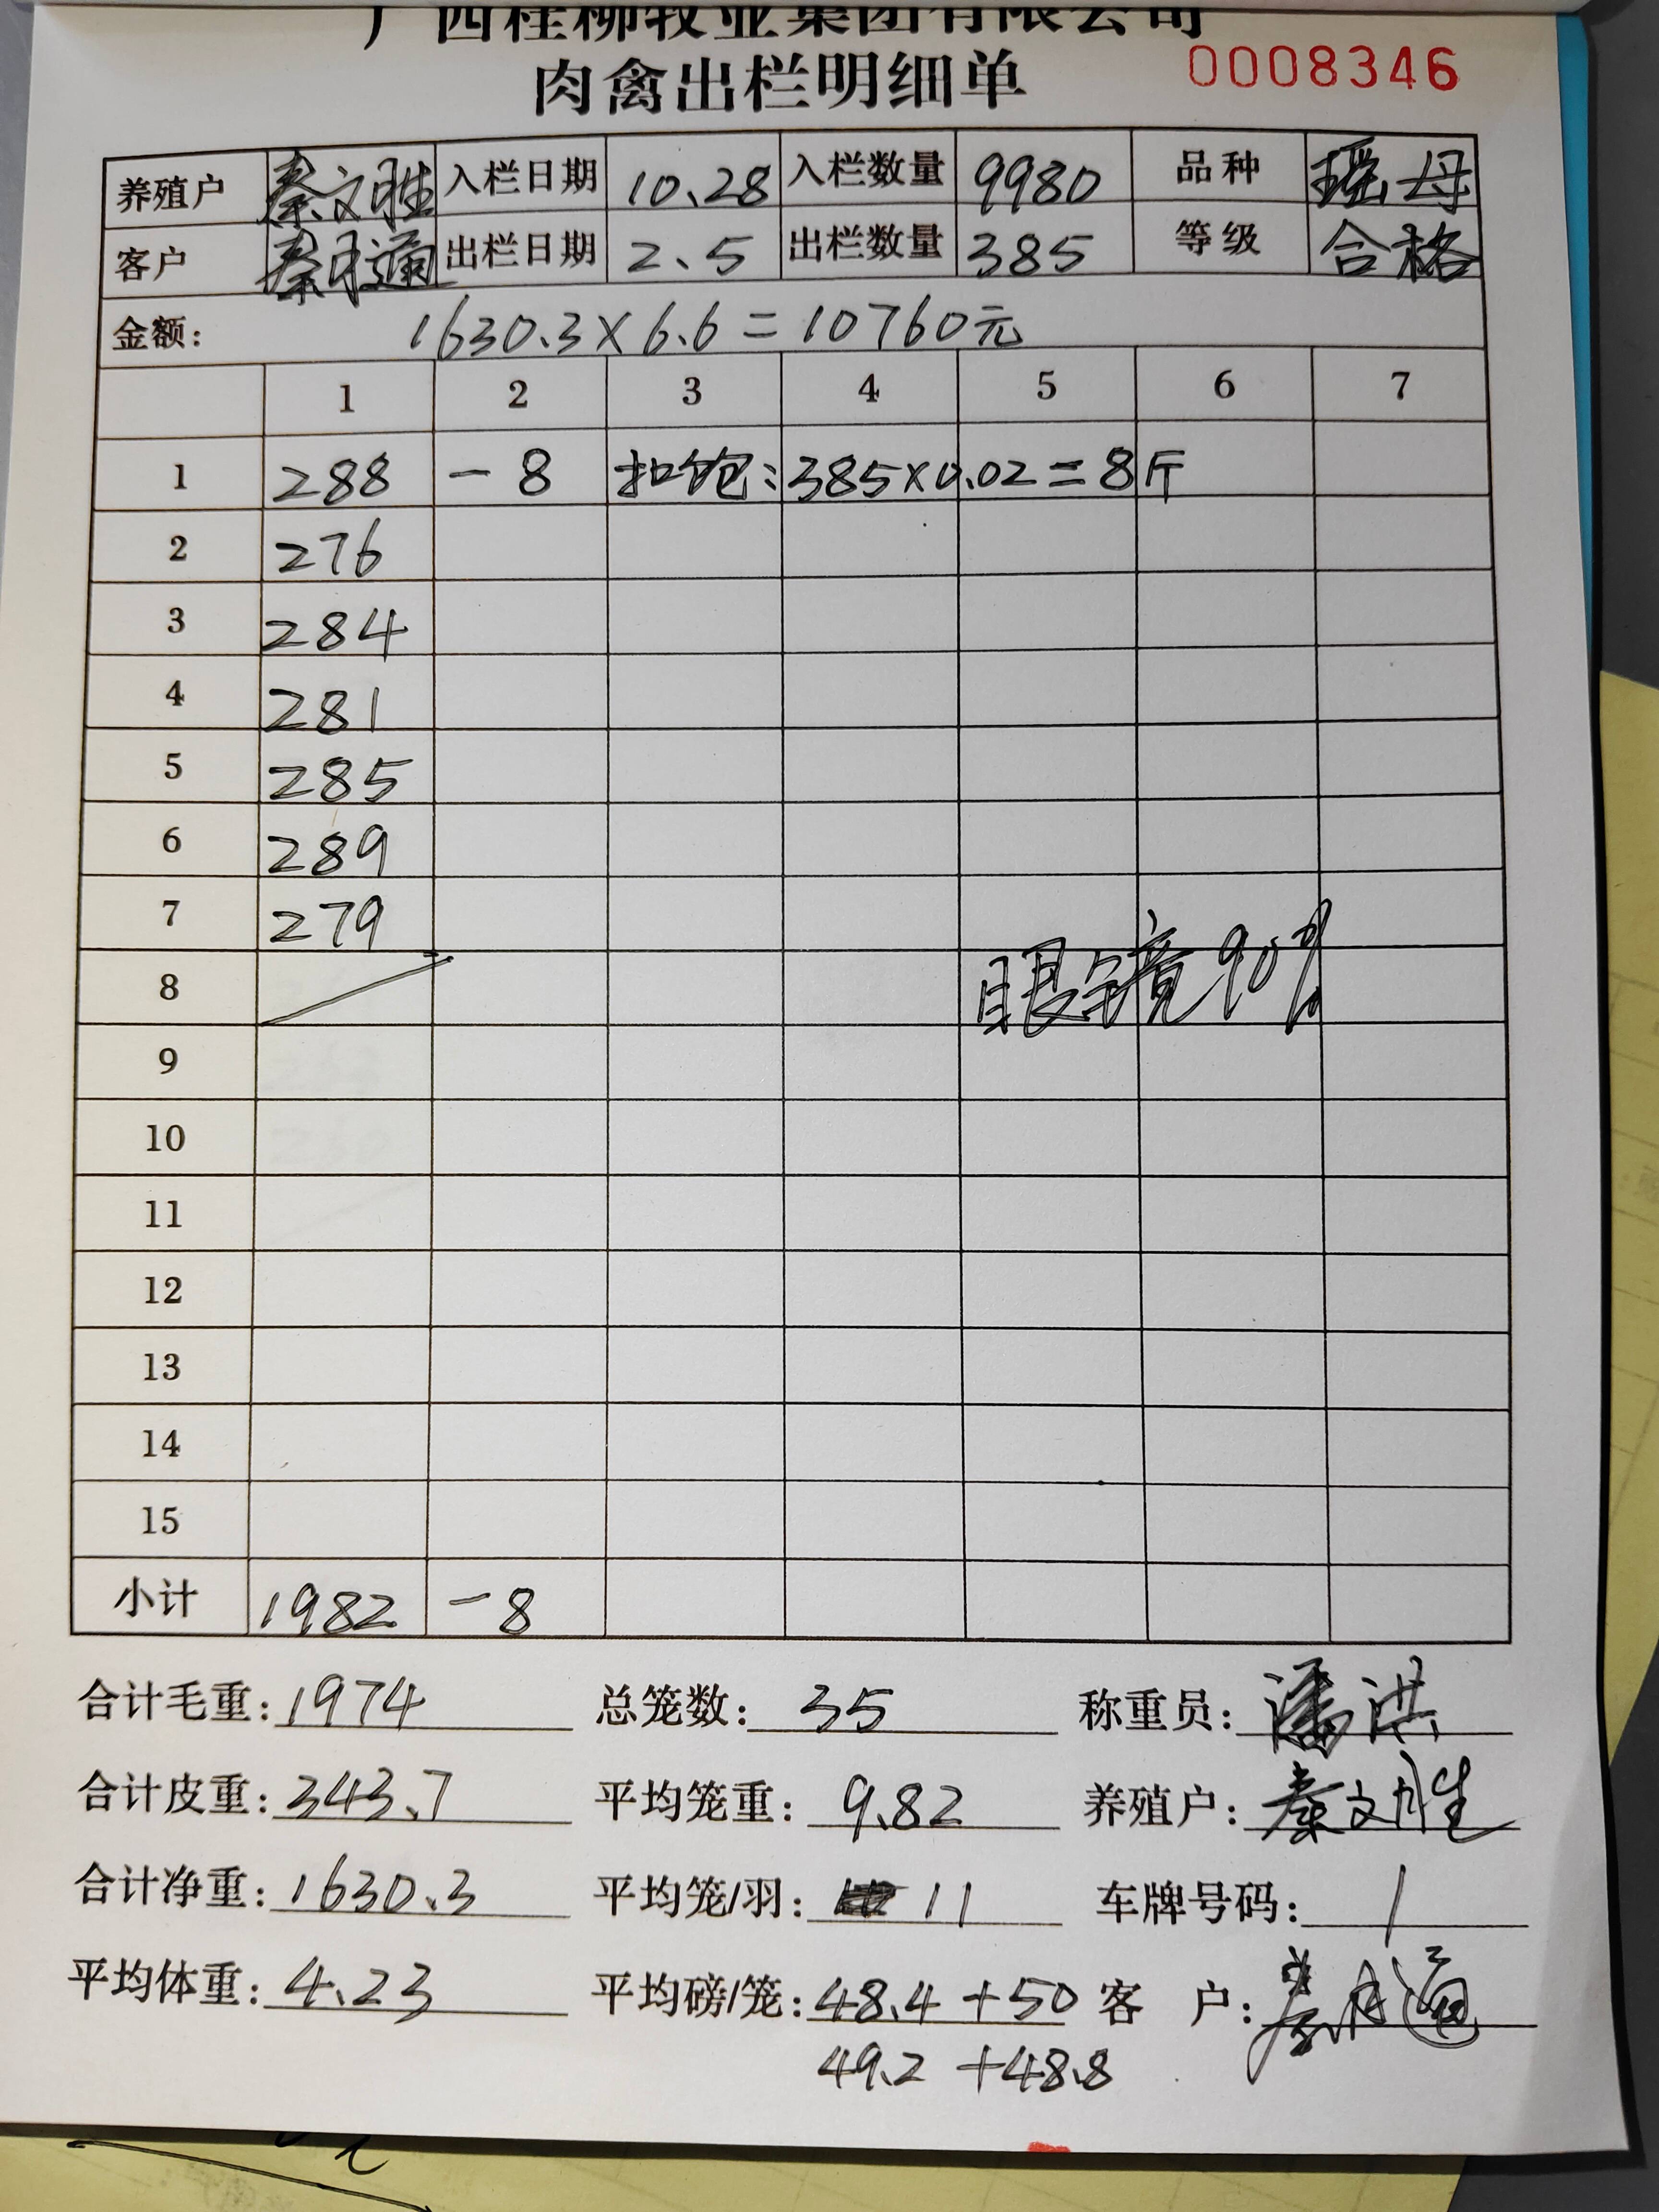 广西桂柳牧业集团有限公司
肉禽出栏明细单 0008346
养殖户 秦文胜 入栏日期 10.28 入栏数量 9980 品种 瑶母
客户 秦月通 出栏日期 2.5 出栏数量 385 等级 合格
金额: 1630.3×6.6=10760元
1 2 3 4 5 6 7
1 288 -8 扣饱:385×0.02=8斤
2 276
3 284
4 281
5 285
6 289
7 279
8 眼镜90%
9
10
11
12
13
14
15
小计 1982 -8
合计毛重: 1974 总笼数: 35 称重员: 潘洪
合计皮重: 343.7 平均笼重: 9.82 养殖户: 秦文胜
合计净重: 1630.3 平均笼/羽: 11 车牌号码: /
平均体重: 4.23 平均磅/笼: 48.4+50 客 户: 秦月通
49.2+48.8